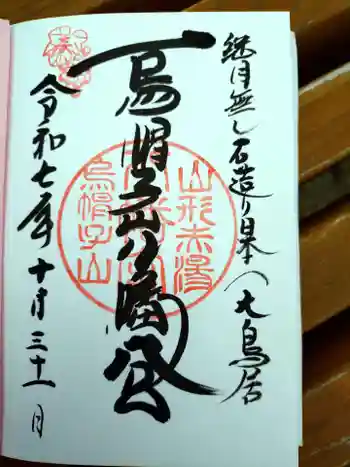 継目無し石造り日本一大鳥居
烏帽子山八幡宮
令和七年十月三十一日
山形赤湯
烏帽子山